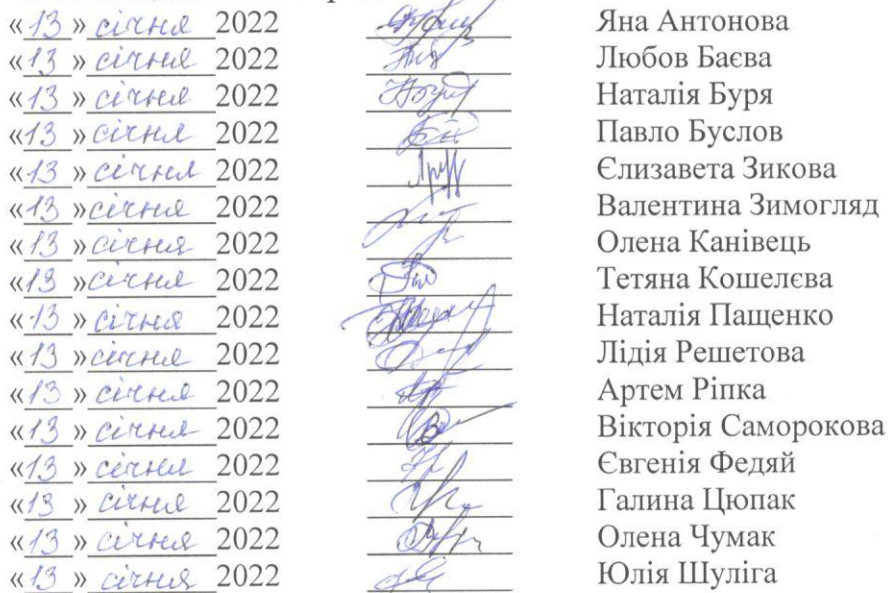 «13» січня 2022 Яна Антонова
«13» січня 2022 Любов Баєва
«13» січня 2022 Наталія Буря
«13» січня 2022 Павло Буслов
«13» січня 2022 Єлизавета Зикова
«13» січня 2022 Валентина Зимогляд
«13» січня 2022 Олена Канівець
«13» січня 2022 Тетяна Кошелєва
«13» січня 2022 Наталія Пащенко
«13» січня 2022 Лідія Решетова
«13» січня 2022 Артем Ріпка
«13» січня 2022 Вікторія Саморокова
«13» січня 2022 Євгенія Федяй
«13» січня 2022 Галина Цюпак
«13» січня 2022 Олена Чумак
«13» січня 2022 Юлія Шуліга